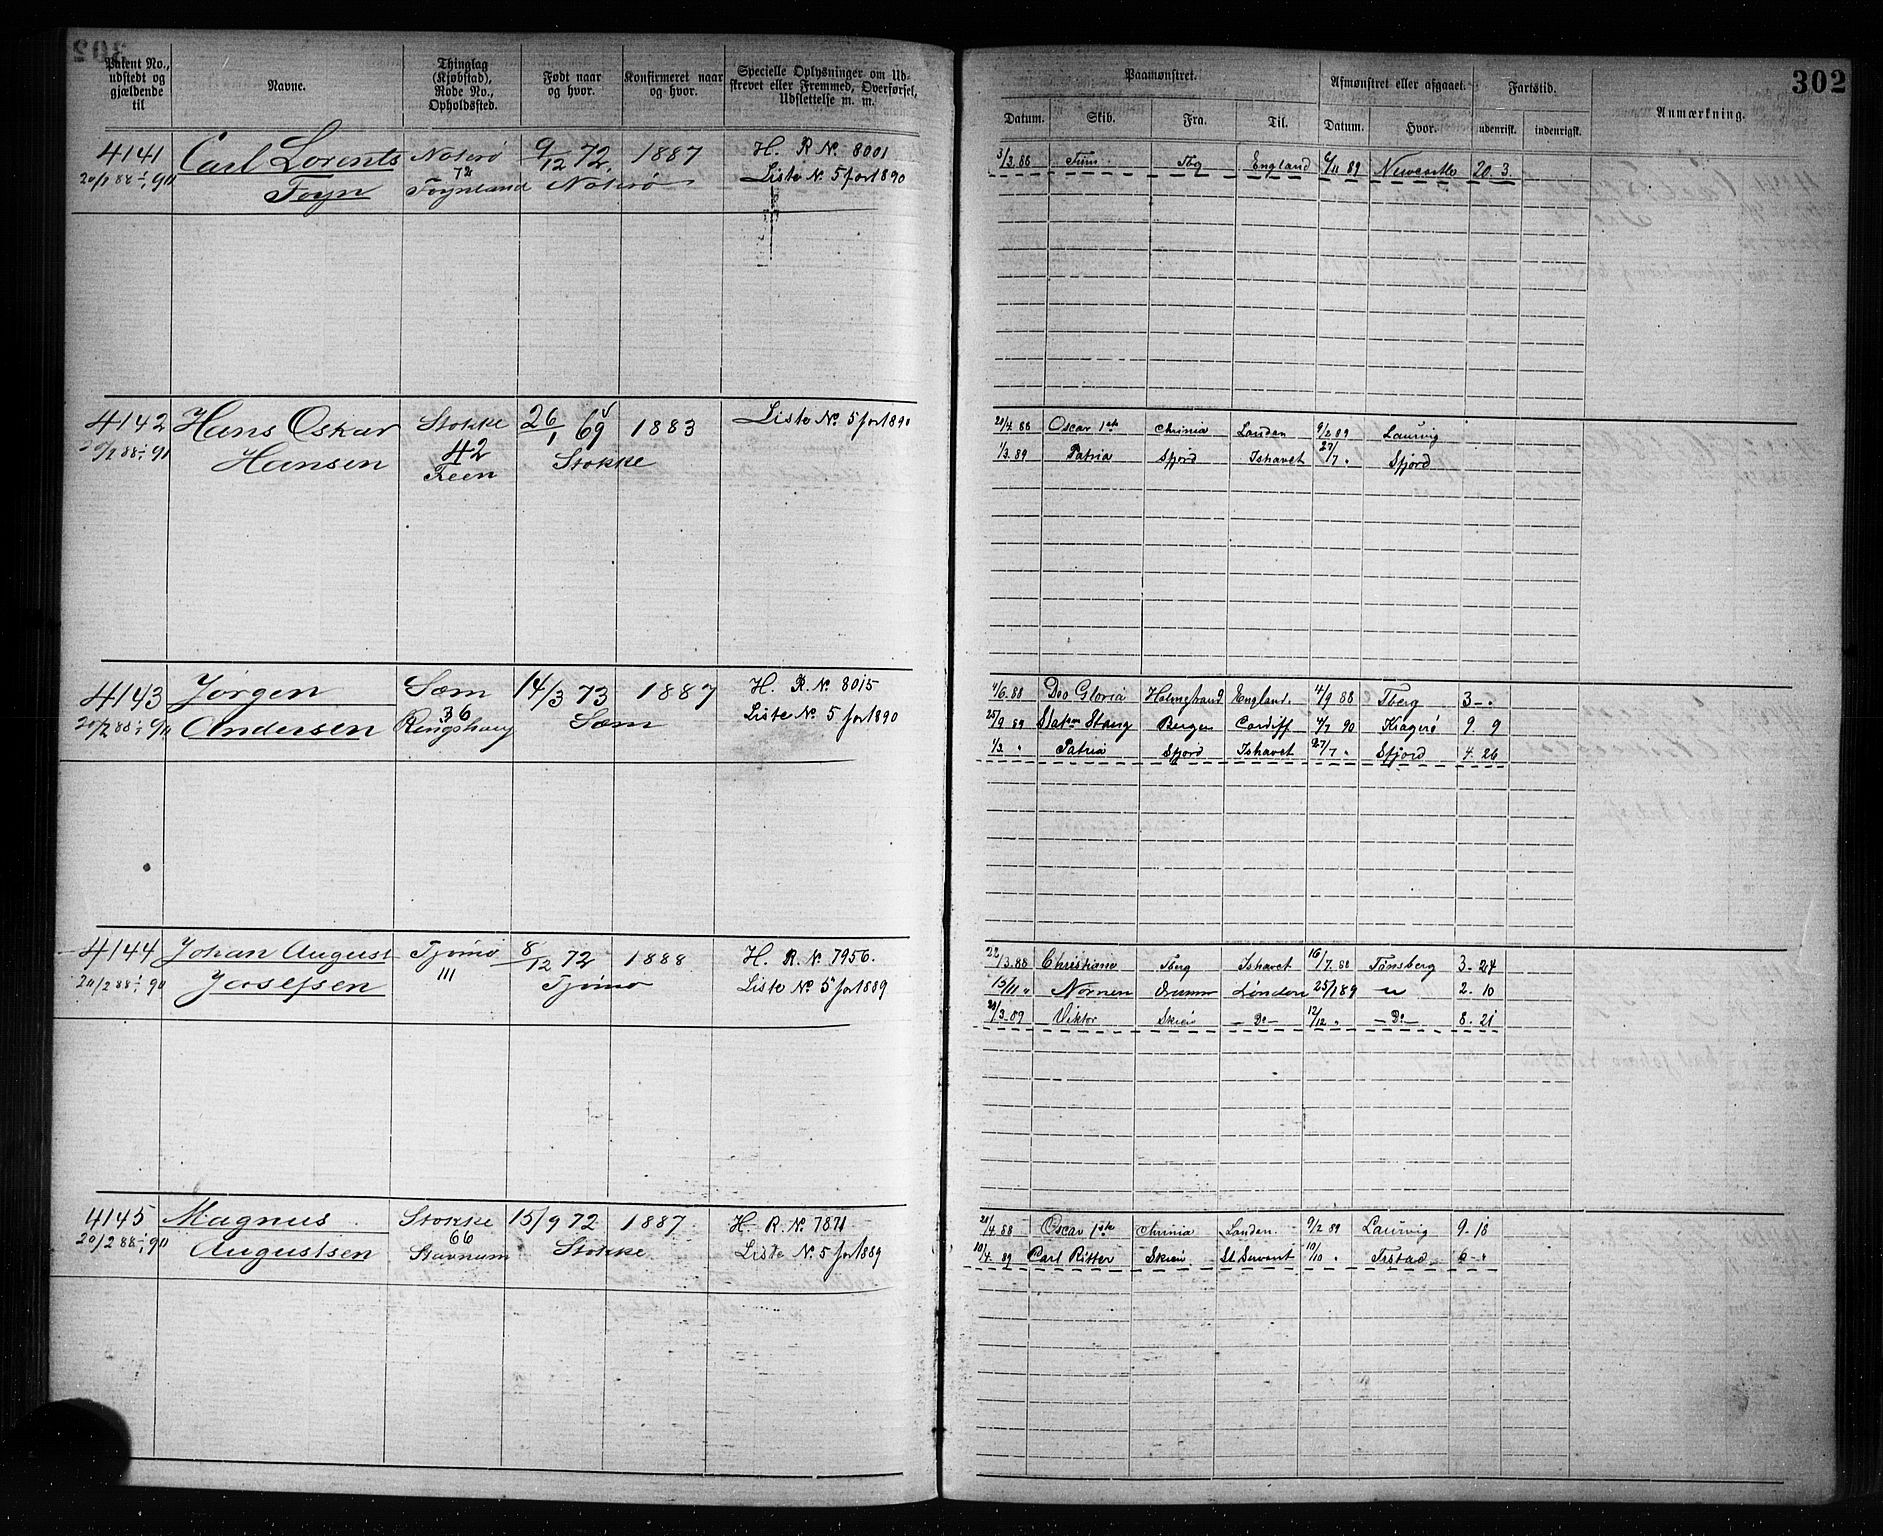 302
Patent No., udstedt og gjældende til
Navne.
Thinglag (Kjøbstad), Rode No., Opholdssted.
Født naar og hvor.
Konfirmeret naar og hvor.
Specielle Oplysninger om Udskrevet eller Fremmed, Overførsel, Udslettelse m. m.
Paamønstret.
Afmønstret eller afgaaet.
Fartstid.
Anmærkning.
Datum. Skib. Fra. Til. Datum. Hvor. udenrigsk. indenrigsk.
4141 Carl Lorents Noterö 9/12 72, 1887 H. R No. 8001
20/2 88 - 1/1 91 Foyn 72 Foynland Noterö Liste No. 5 for 1890
3/3.88 Tbg England 6/11 89 Newcastle 20. 3.
4142 Hans Oskar Stokke 26/1 69 1883 Liste No. 5 for 1890
Hansen 42 Stokke
Feen
20/4 88 Oscar 1ste Chrinia Landen 9/2 89 Laurvig
1/3. 89 Patria Sfjord Ishavet 27/7 " Sfjord
4143 Jörgen Sæm 14/3 73 1887 H. R. No. 8015
20/2 88 - 1/1 91 Andersen 36 Ringshaug Sæm Liste No. 5 for 1890
/6. 88 Deo Gloria Holmestrand England. 4/9 88 Tberg 3 - "
25/9 89 Statsm Stang Bergen Cardiff 4/7 90 Kragerö 9. 9
1/3 " Patria Sfjord Ishavet 27/7 " Sfjord 4. 26
4144 Johan August Tjömö 8/12 72 1888 H. R. No. 7956.
20/2 88 - 1/1 91 Josefsen 111 Tjömö Liste No. 5 for 1889
22/3. 88 Christiane Tberg Ishavet 16/7. 88 Tönsberg 3. 24
15/11 " Nornen Dramm London 25/1 89 " 2. 10
20/3. 89 Viktor Skien - Do - 12/12 " - Do - 8. 21
4145 Magnus Stokke 15/9 72 1887. H. R. No. 7871
20/2 88 - 1/1 91 Augustsen 66 Stavnum Stokke Liste No. 5 for 1889
20/4. 88 Oscar 1ste Chrinia Landen 9/2 89 Laurvig 9. 18
10/4. 89 Carl Ritter Skien St. Servant 10/10 " Frstad 6 - "